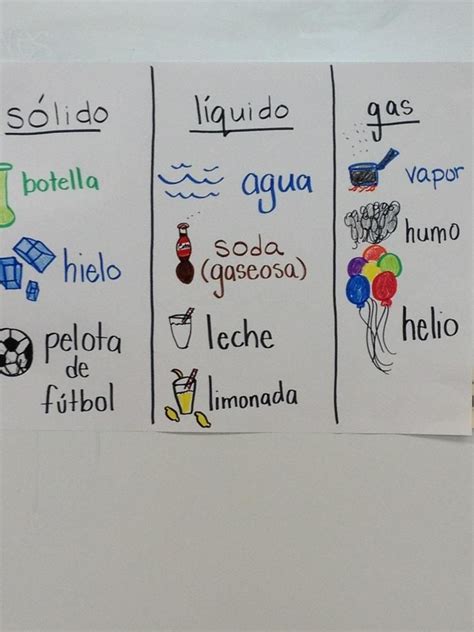 sólido
botella
hielo
pelota
de
fútbol
líquido
agua
soda
(gaseosa)
leche
limonada
gas
vapor
humo
helio